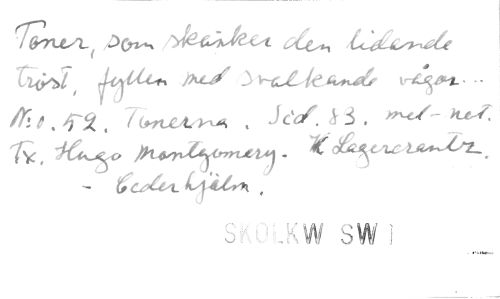 Toner, som skänker den lidande
tröst, fyllen med svalkande vågor...
N:o. 52. Tonerna. Sid. 83. mel-not.
Tx. Hugo Montgomery. K Lagercrantz.
- Cederhjälm.
SKOLKW SW